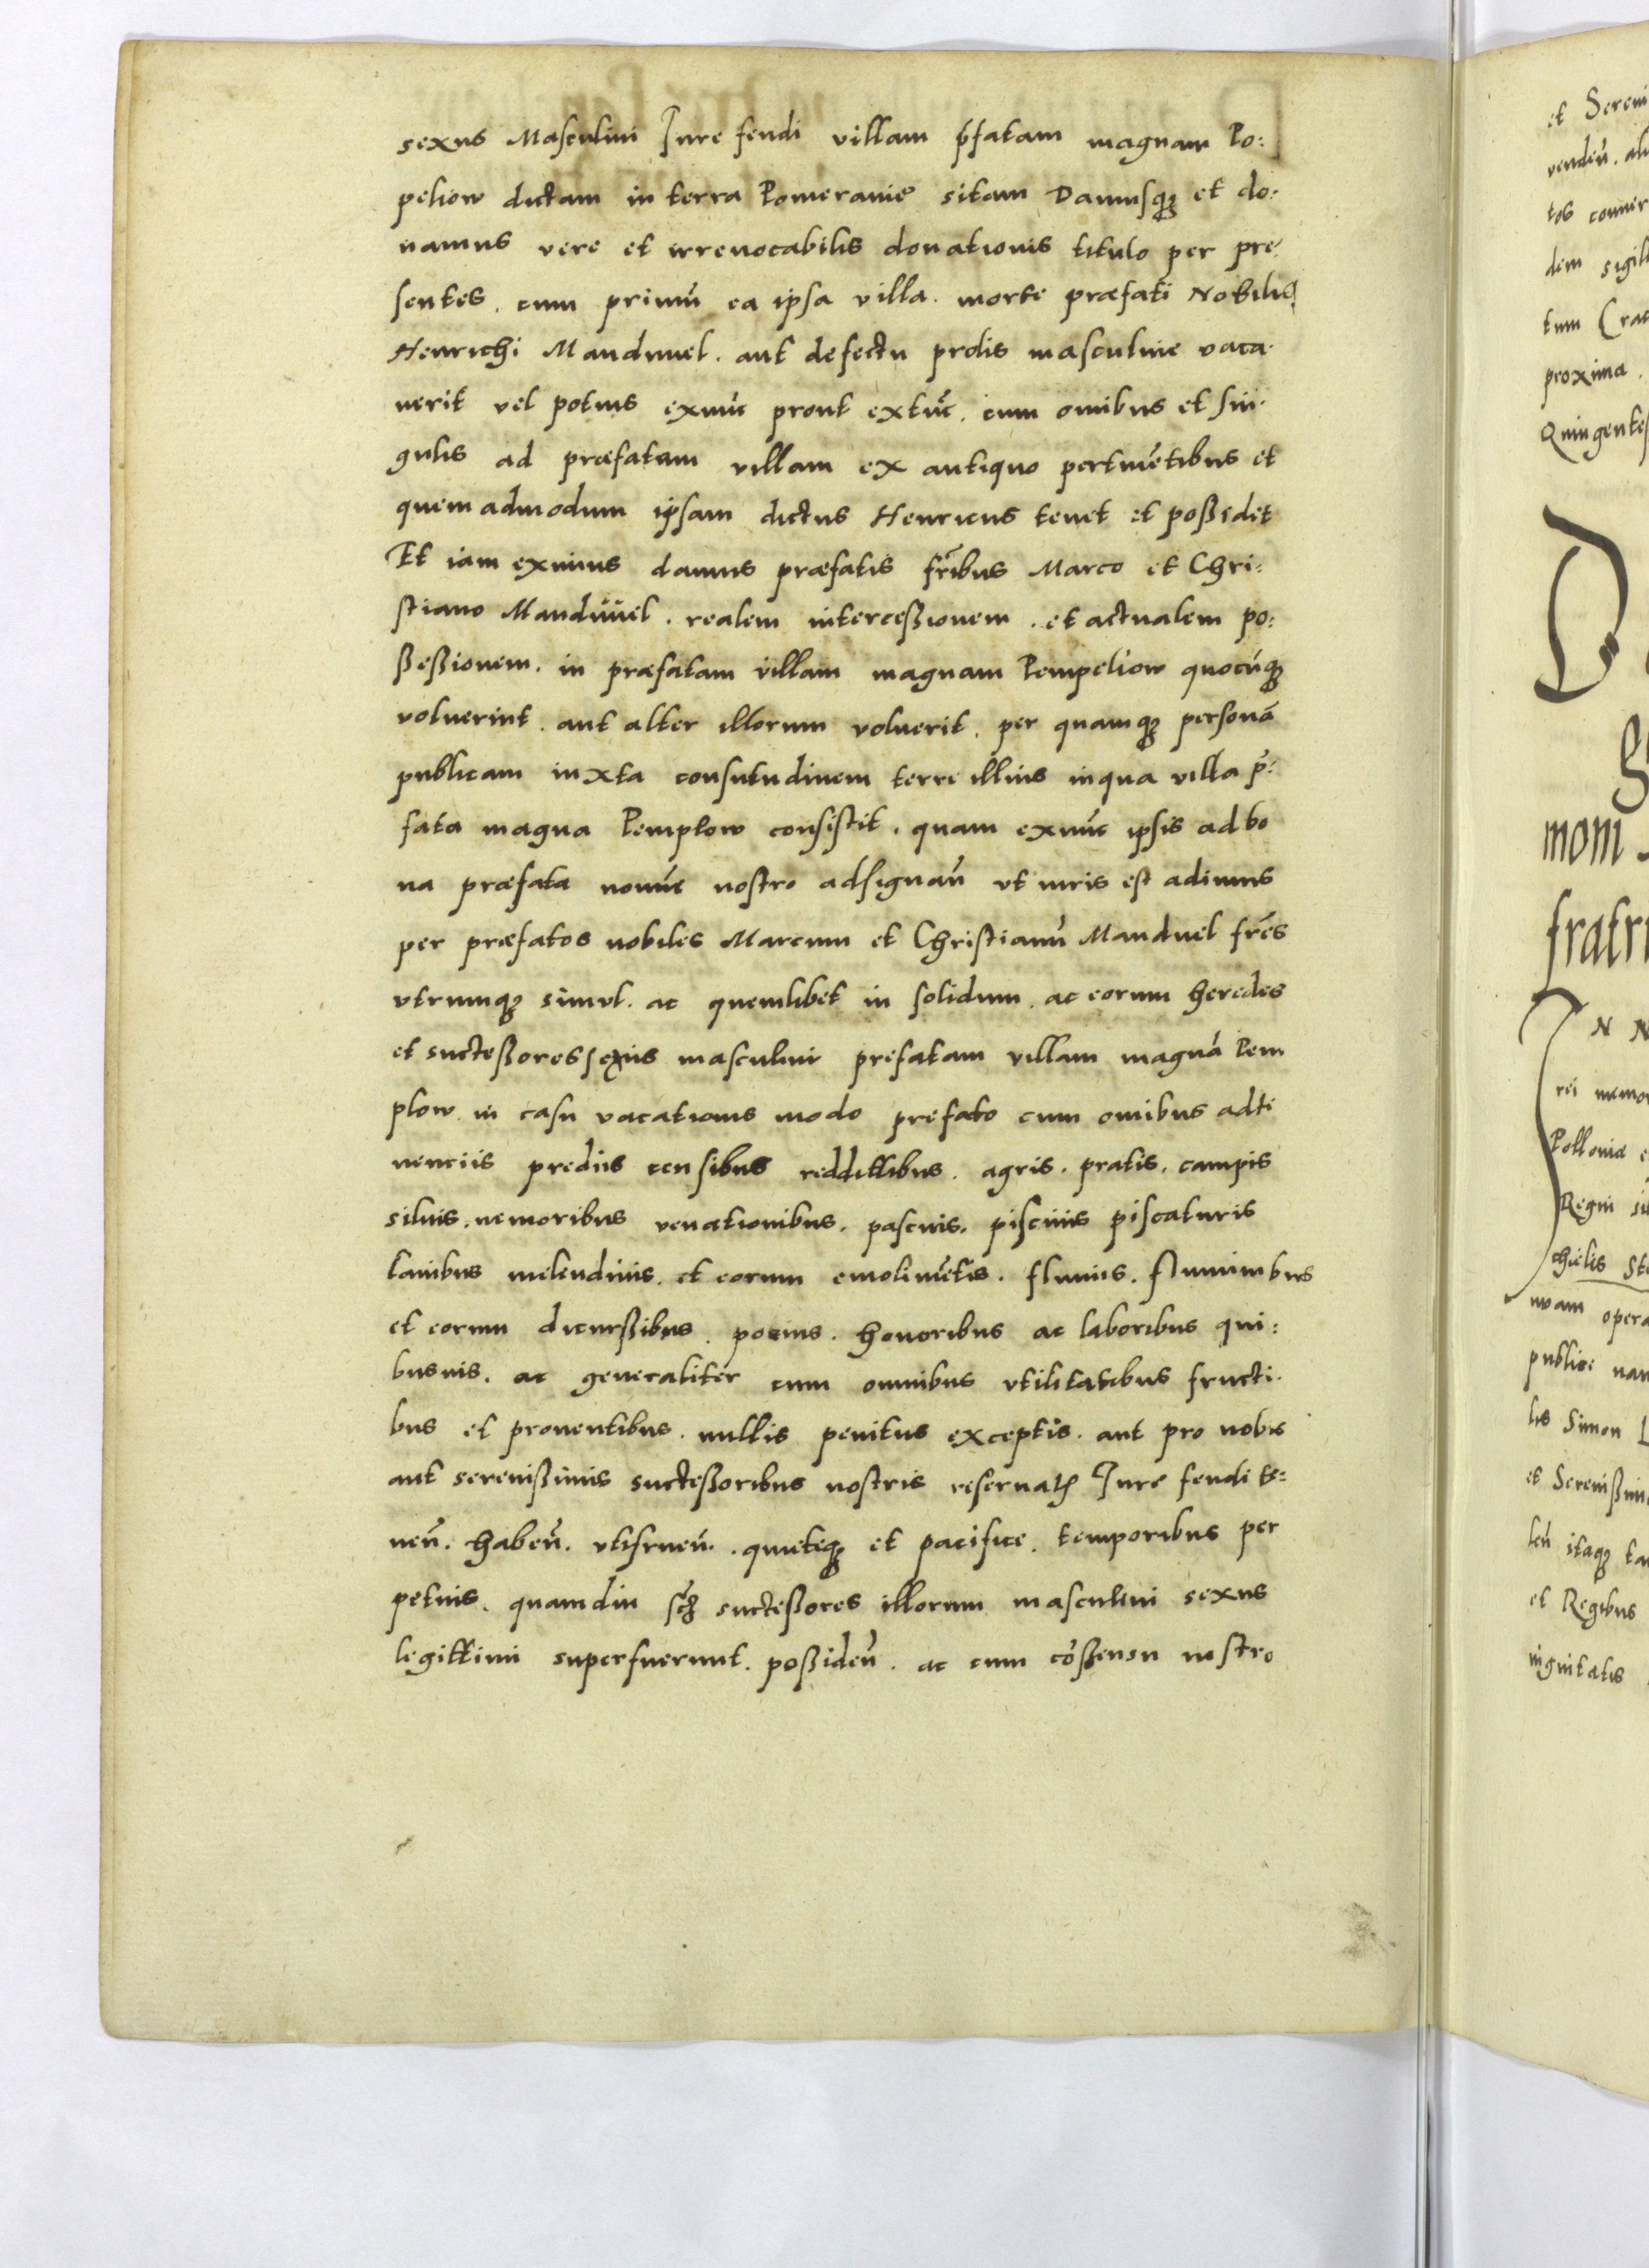 sexus Masculini Jure feudi villam p̃fatam magnam Po:
peliow dictam in terra Pomeranie sitam Damusq3 et do:
namus vere et irreuocabilis donationis titulo per pre
sentes. cum primũ ea ipsa villa. morte præfati Nobilis
Henrichi Manduuel. aut defectu prolis masculine vaca
uerit vel potius exnũc prout extũc. cum omibus et sin
gulis ad præfatam villam ex antiquo pertinẽtibus et
quemadmodum ipsam dictus Henricus tenet et poßidet
Et iam eximus damus præfatis fr̃ibus Marco et Chri:
stiano Manduuel. realem interceßionem. et actualem po:
ßeßionem. in præfatam villam magnam Pempeliow quocũq3
voluerint. aut alter illorum voluerit. per quamq3 personã
publicam iuxta consutudinem terre illius in qua villa p̃:
fata magna Pemplow consistit. quam exnũc ipsis ad bo
na præfata nomĩe nostro adsignañ vt iuris est adimus
per præfatos nobiles Marcum et Christianũ Manduel fr̃es
vtrumq3 simul. ac quemlibet in solidum. ac eorum heredes
et succeßores sexus masculini prefatam villam magnã Pem
plow in casu vacationis modo prefato cum omibus adti
nenciis prediis censibus reddittibus. agris. pratis. campis
siluis. nemoribus venationibus. pascuis. piscinis piscaturis
lanibus melendinis. et eorum emolimẽtis. fluuiis. fluminibus
et eorum dicurßibus. honoribus ac laboribus qui:
busuis. ac generaliter cum omnibus vtilitatibus fructi
bus et prouentibus. nullis penitus exceptis. aut pro nobis
aut serenißimis succeßoribus nostris reseruatis Jure feudi te:
neñ. habeñ. vtifrueñ. quieteq3 et pacifice. temporibus per
petuis. quamdiu succeßores illorum masculini sexus
legittimi superfuerunt. poßideñ. ac cum cõßensu nostro
et Sereni
dem sigil
proxima
moni
fratri
rei memor
Pollonia
chielis
publice
lis Simon
et Serenißim
et Regibus